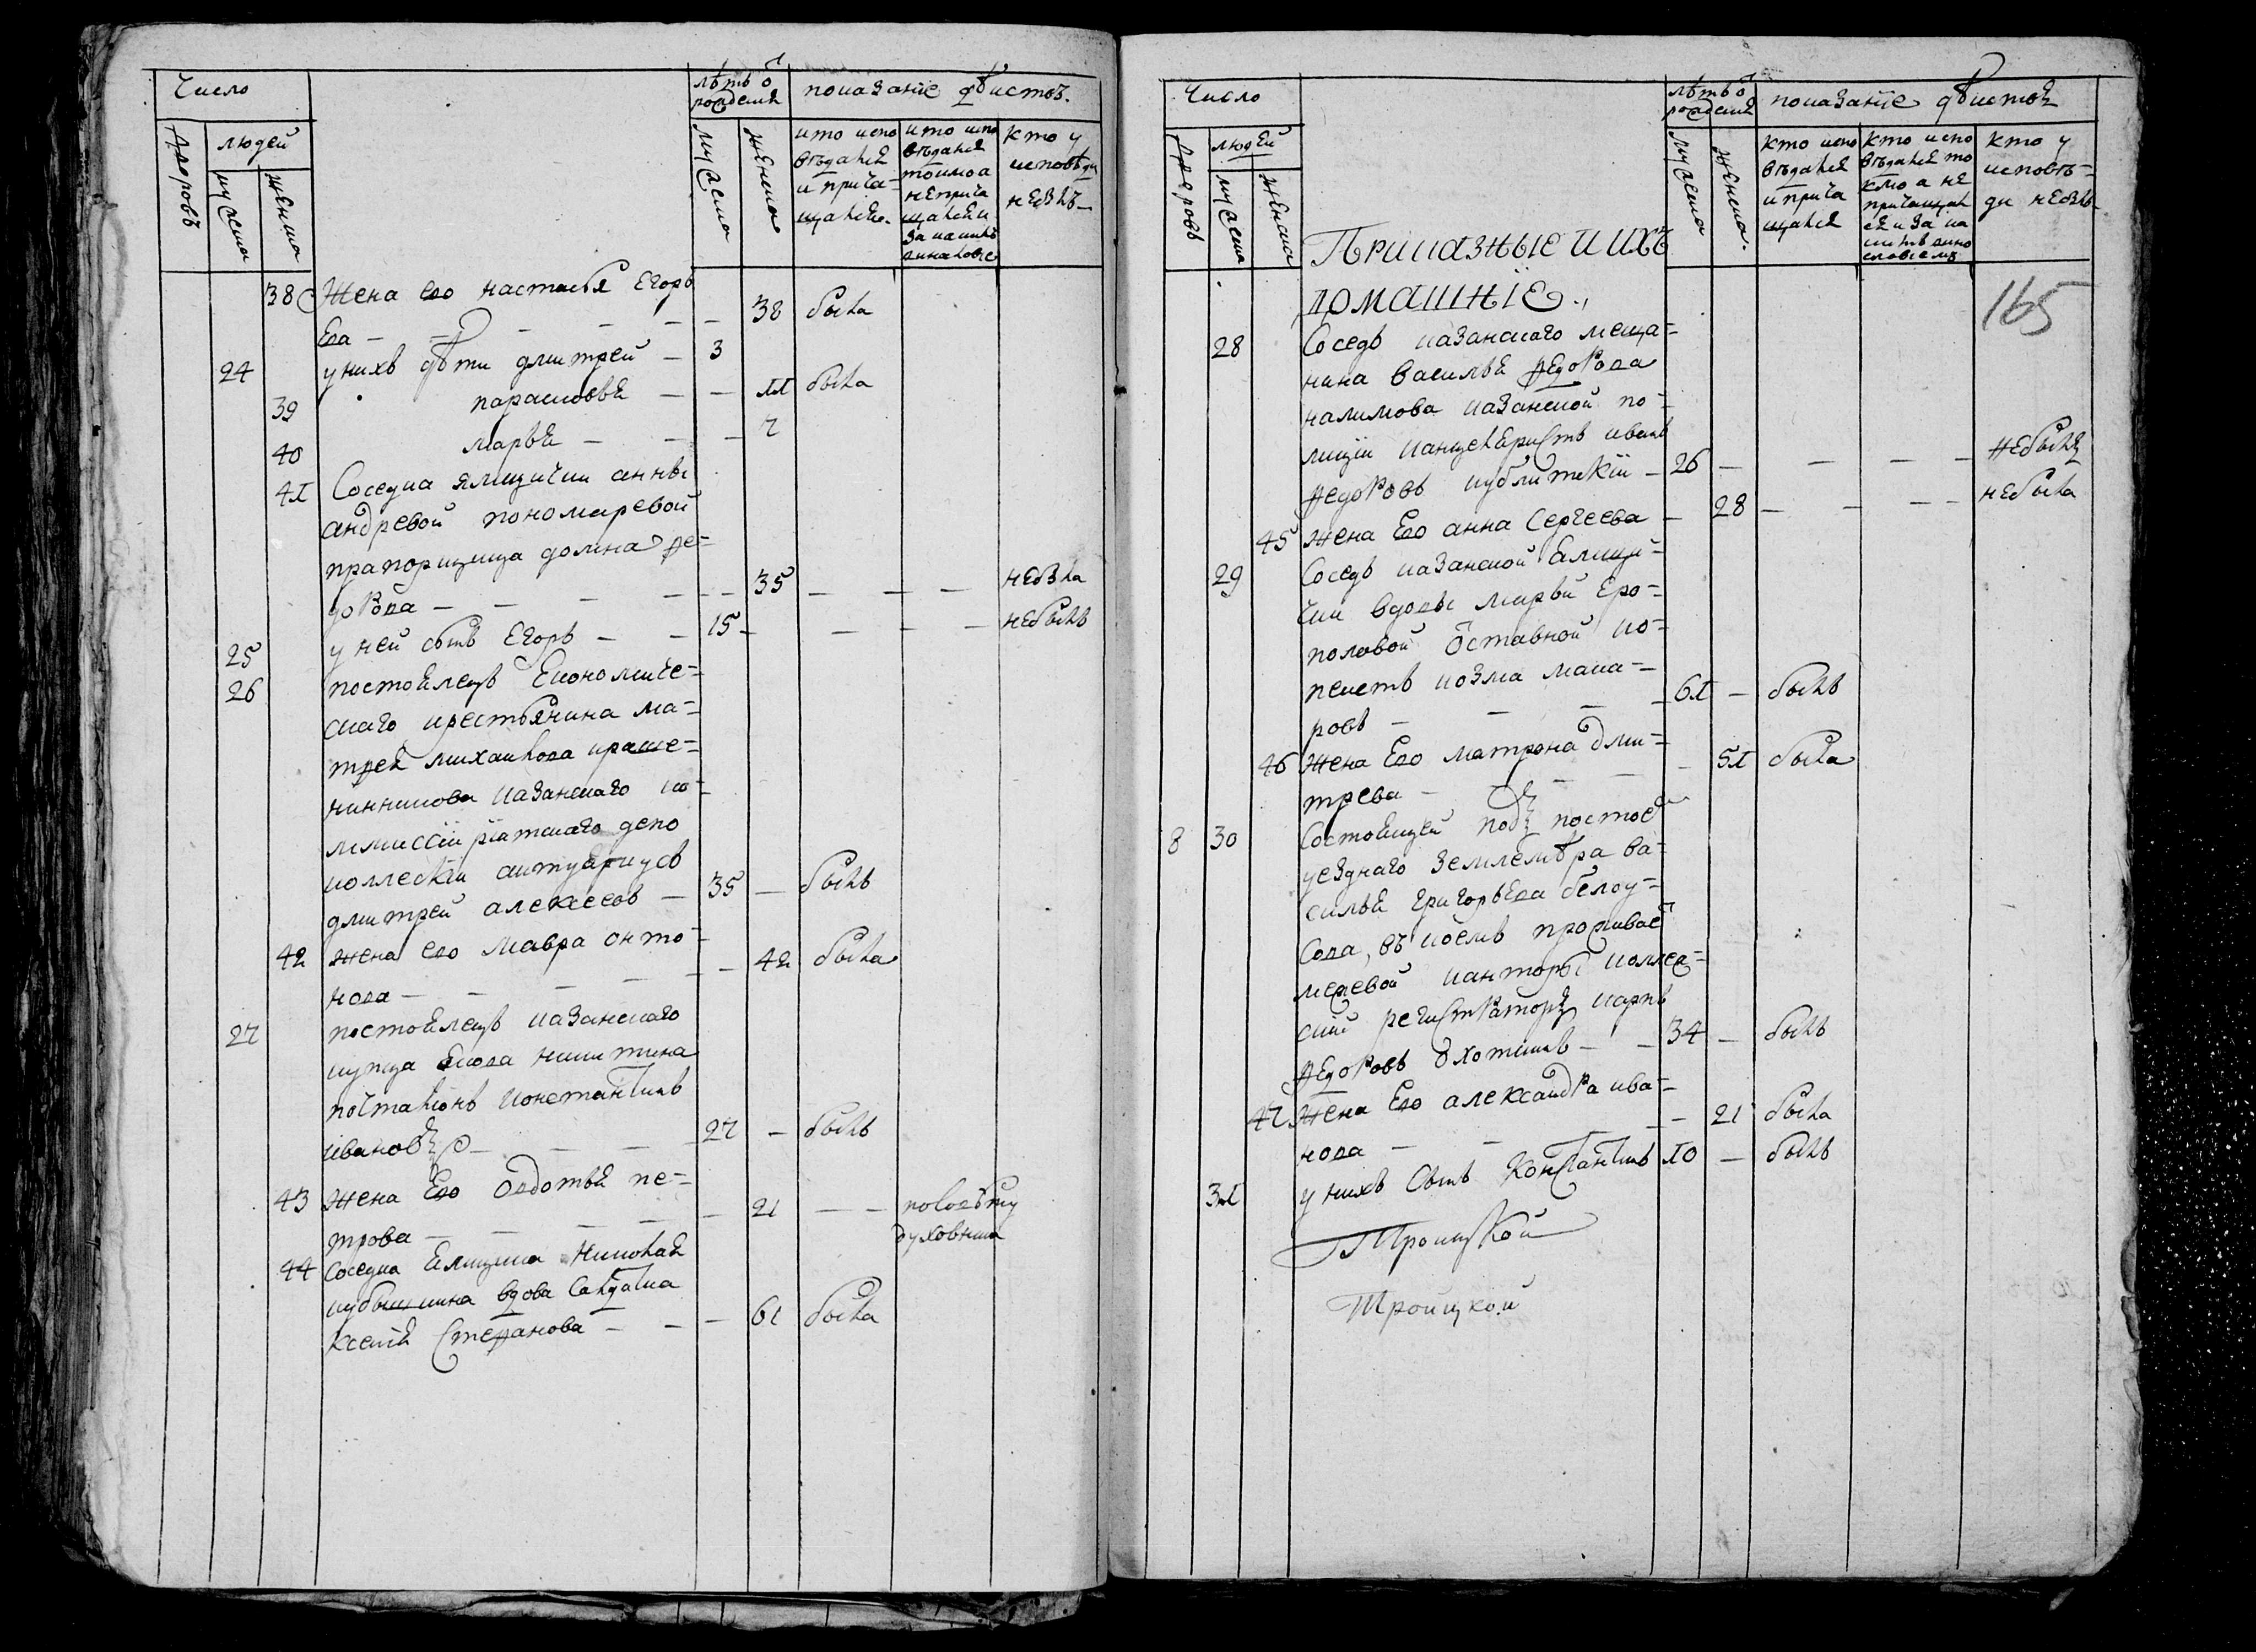 Число
лѣтъ ѿ рожденiя
показанiе дѣйствъ.
дворовъ
людей
мужеска
женска
мужеска
женска
кто испо
вѣдался
и прича=
щался.
кто испо
вѣдался
токмо а
не прича
щался и
за какимъ
винослов
кто у
исповѣди
небылъ
38 Жена его настасья Егорь
ева — 38 была
24 у нихъ дѣти дмитрей — 3
39 парасковья — 11 была
40 марья — 7
41 Соседка ямщички анны
андревой пономаревой
прапорщица домна фе=
дорова — 35 — небыла
25 у ней сынъ Егоръ — 15 — небылъ
26 постоялецъ Економиче=
скаго крестьянина ма=
твея михаилова краше=
нинникова казанскаго ко=
ммиссiи рiатскаго депо
коллескiи актуариусъ
дмитрей алексеевъ — 35 — былъ
42 жена его мавра онто=
нова — 42 была
27 постоялецъ казанскаго
купца якова никитина
почталiонъ Константинъ
ивановъ — 27 — былъ
43 жена Его Овдотья пе=
трова — 21 — по совѣту
духовника
44 соседка ямщика Николая
кубышкина вдова Салдатка
Ксенiя Стефанова — 61 была
Число
лѣтъ ѿ рожденiя
показанiе дѣйствъ
дворовъ
людей
мужеска
женска
мужеска
женска.
кто испо
вѣдался
и прича
щался
кто испо
вѣдался то
кмо а не
причащал
ся и за ка
кимъ вино
словiемъ
кто у
исповѣ=
ди небы.
Приказные и ихъ
домашнiе.
165
28 Соседъ казанскаго меща=
нина василья федорова
налимова казанской по=
лицiи канцеляристъ иванъ
федоровъ кублитскiй — 26 — небылъ
45 жена Его анна Сергеева — 28 — небыла
29 Соседъ казанской ямщи=
чки вдовы марьи Еро=
половой ѿставной ко=
пеистъ козма мака=
ровъ — 61 — былъ
46 жена Его матрона дми=
трева — 51 была
8 30 Состоящей подъ постоем
уезднаго землемѣра ва=
силья григорьева белоу=
сова, въ коемъ проживае
межевой канторы коллеж=
скiй регистраторъ карпъ
федоровъ Охотинъ — 34 — былъ
47 Жена Его александра ива=
нова — 21 была
31 у нихъ Сынъ Константинъ 10 — былъ
Троицкой
Троицкой